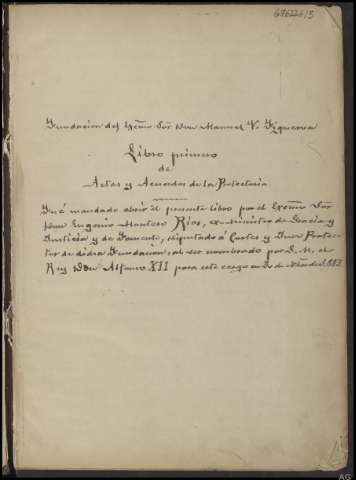 67622c/3
Fundacion del Excmo Sor Don Manuel V. Figueroa
Libro primero
de
Actas y Acuerdos de la Protectoria
Fué mandado abrir el presente libro por el Excmo Sor
Don Eugenio Montero Rios, ex-Ministro de Gracia y
Justicia y de Fomento, diputado á Cortes y Juez Protec-
tor de dicha Fundacion, al ser nombrado por S. M. el
Rey Don Alfonso XII para este cargo en de de
AG